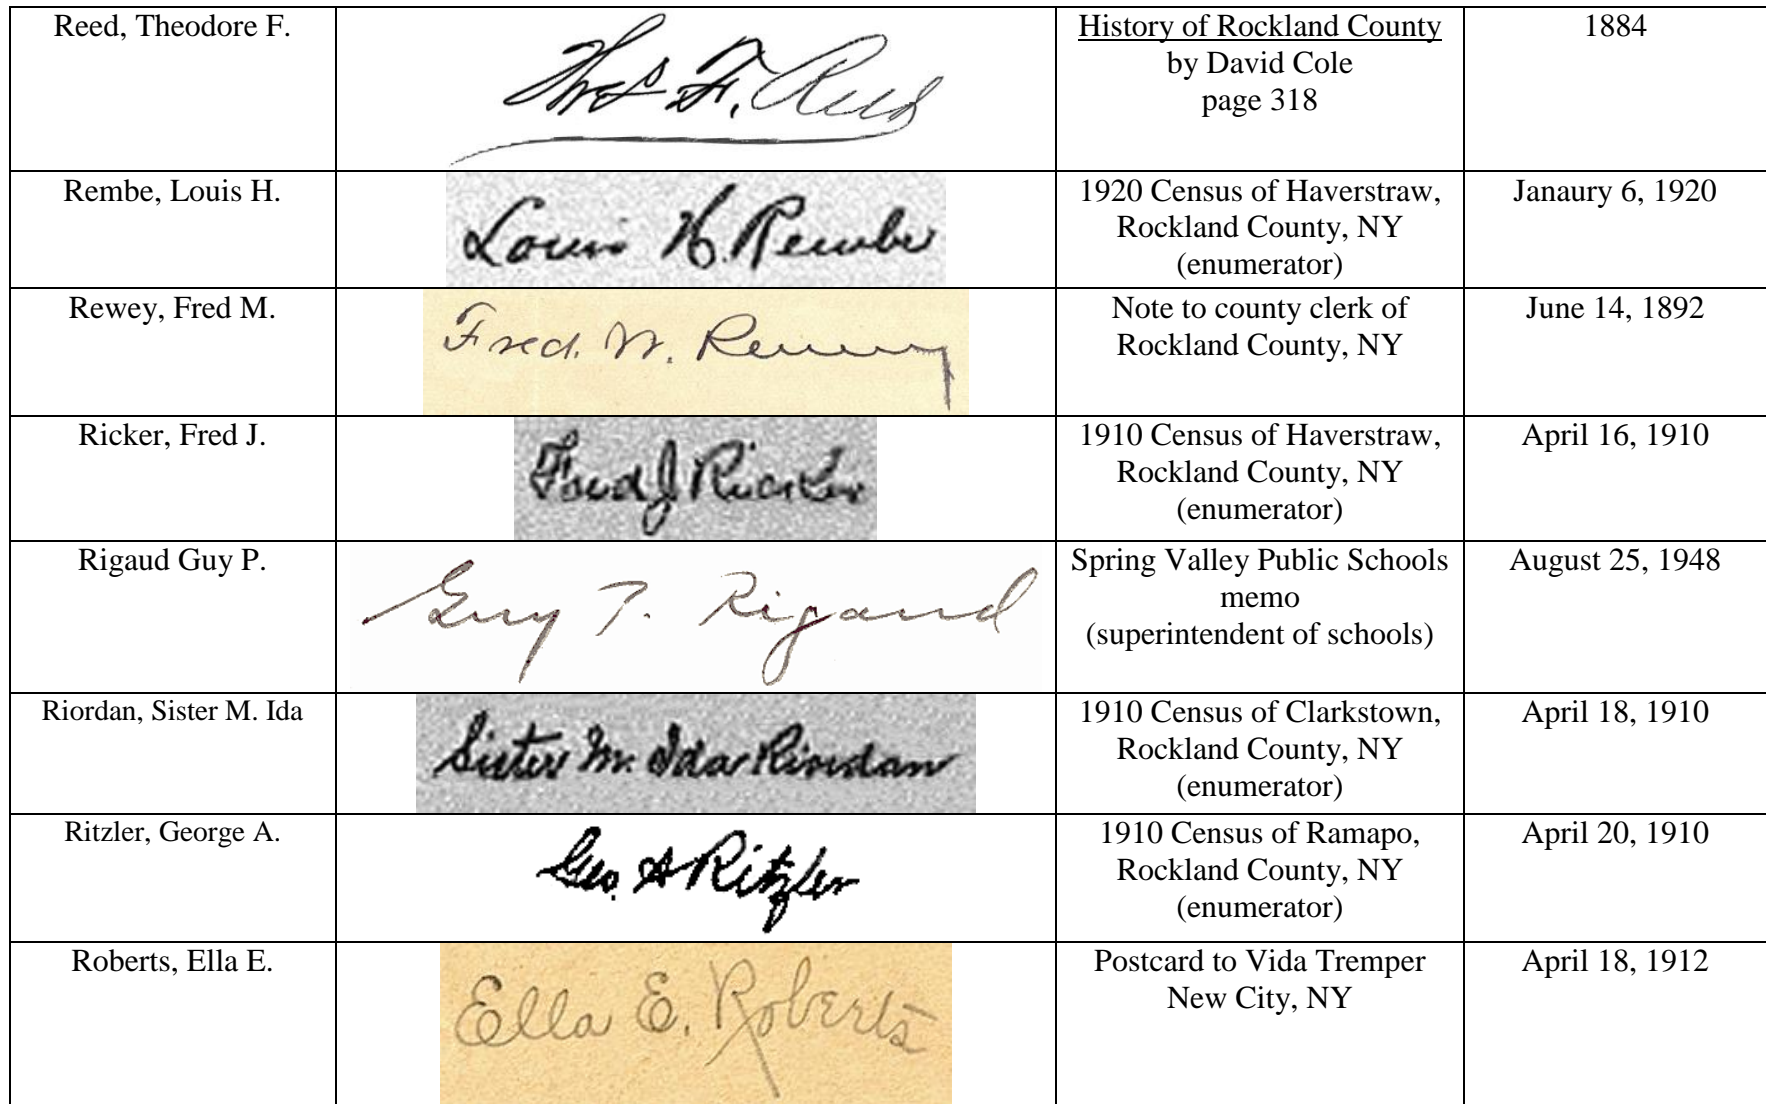 Reed, Theodore F.
Theo F. Reed
History of Rockland County
by David Cole
page 318
1884
Rembe, Louis H.
Louis H. Rembe
1920 Census of Haverstraw,
Rockland County, NY
(enumerator)
Janaury 6, 1920
Rewey, Fred M.
Fred. M. Rewey
Note to county clerk of
Rockland County, NY
June 14, 1892
Ricker, Fred J.
Fred J Ricker
1910 Census of Haverstraw,
Rockland County, NY
(enumerator)
April 16, 1910
Rigaud Guy P.
Guy P. Rigaud
Spring Valley Public Schools
memo
(superintendent of schools)
August 25, 1948
Riordan, Sister M. Ida
Sister M. Ida Riordan
1910 Census of Clarkstown,
Rockland County, NY
(enumerator)
April 18, 1910
Ritzler, George A.
Geo. A Ritzler
1910 Census of Ramapo,
Rockland County, NY
(enumerator)
April 20, 1910
Roberts, Ella E.
Ella E. Roberts
Postcard to Vida Tremper
New City, NY
April 18, 1912